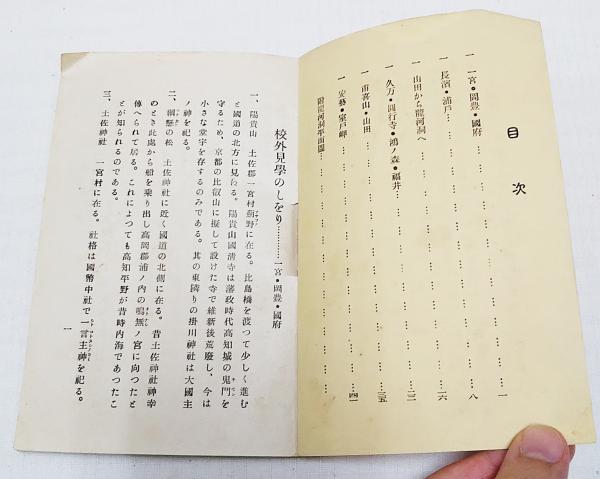 目次
一 一宮・岡豊・國府………………一
一 長濱・浦戸………………八
一 山田から龍河洞へ………………一六
一 久万・圓行寺・鴻ノ森・福井………………二二
一 甫喜山・山田………………三五
一 安藝・室戸岬………………四一
附龍河洞平面圖………………
校外見學のしをり…………一宮・岡豊・國府
一、陽貴山 土佐郡一宮村薊野に在る。比島橋を渡つて少しく進む
と國道の北方に見ゆる。陽貴山國清寺は藩政時代高知城の鬼門を
守るため、京都の比叡山に擬して設けた寺で維新後荒廢し、今は
小さな堂宇を存するのみである。其の東隣りの掛川神社は大國主
ノ神を祀る。
二、綱懸の松 土佐神社に近く國道の北側に在る。昔土佐神社神幸
のとき此處から船を乘り出し高岡郡浦ノ内の鳴無ノ宮に向つたと
傳へられて居る。これによつても高知平野が昔時内海であつたこ
とが知られるのである。
三、土佐神社 一宮村に在る。社格は國幣中社で一言主神を祀る。
一